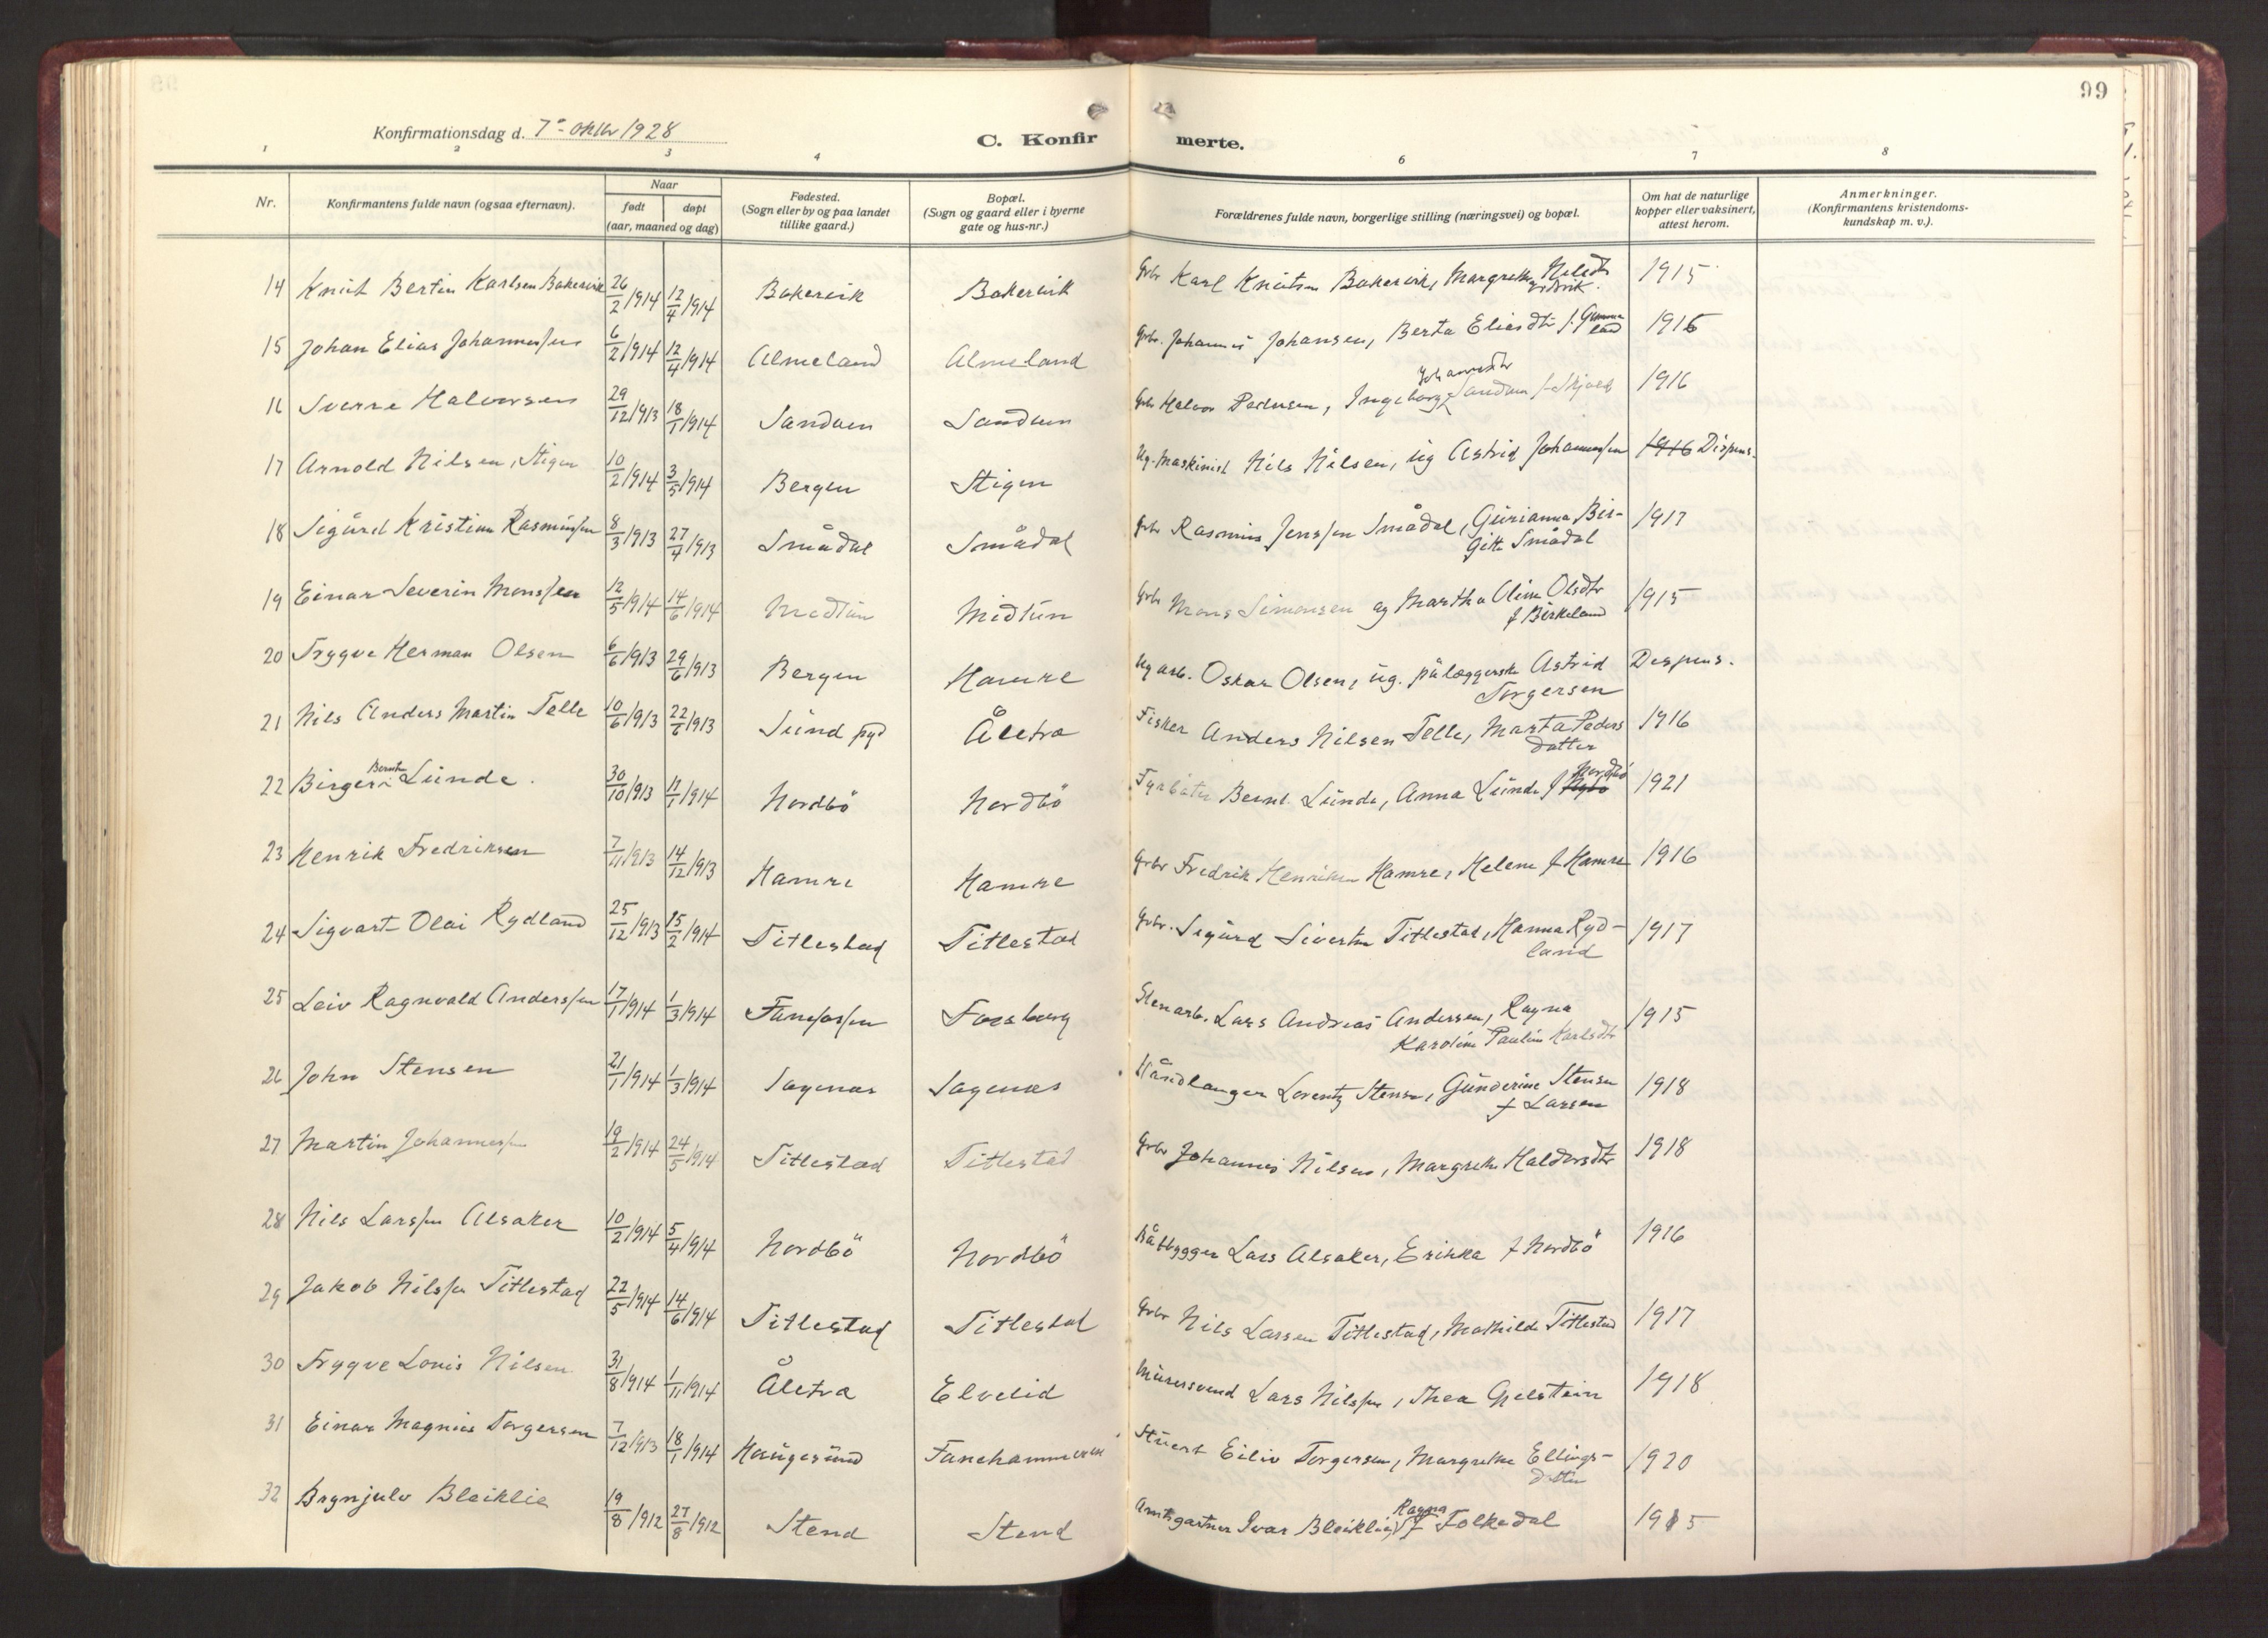 99
Konfirmationsdag d. 7de oktbr 1928
C. Konfirmerte.
1 2 3 4 6 7 8
Nr.
Konfirmantens fulde navn (ogsaa efternavn).
Naar
født
døpt
(aar, maaned og dag)
Fødested.
(Sogn eller by og paa landet
tillike gaard.)
Bopæl.
(Sogn og gaard eller i byerne
gate og hus-nr.)
Forældrenes fulde navn, borgerlige stilling (næringsvei) og bopæl.
Om hat de naturlige
kopper eller vaksinert,
attest herom.
Anmerkninger.
(Konfirmantens kristendoms-
kundskap m. v.).
14 Knut Bertin Karlsen Bakervik 26/2 1914 12/4 1914 Bakervik Bakervik Grbr Karl Knutsen Bakervik, Margrethe Nilsdtr 1915
15 Johan Elias Johannessen 6/2 1914 12/4 1914 Almeland Almeland Grbr. Johannes Johansen, Berta Eliasdtr f. Gummeland 1916
16 Sverre Halvorsen 29/12 1913 18/1 1914 Sandven Sandven Grbr Halvor Pedersen, Ingeborg Johannesdtr Sandven f. Skjold 1916
17 Arnold Nilsen, Stigen 10/2 1914 3/5 1914 Bergen Stigen Ug. maskinist Nils Nilsen, ug Astrid Johannessen 1916 Dispens.
18 Sigurd Kristian Rasmussen 8/3 1913 27/4 1913 Smådal Smådal Grbr Rasmus Jenssen Smådal, Gurianna Bir-
gitte Smådal 1917
19 Einar Severin Monssen 12/5 1914 14/6 1914 Midtun Midtun Grbr Mons Simonsen og Martha Oline Olsdtr
f Birkeland 1915
20 Trygve Herman Olsen 6/6 1913 29/6 1913 Bergen Hamre Ug arb. Oskar Olsen, ug. pålæggerske Astrid
Torgersen Dispens.
21 Nils Anders Martin Telle 10/6 1913 22/6 1913 Sund pgd Åletra Fisker Anders Nilsen Telle, Marta Peders
datter 1916
22 Birger Bernh. Lunde. 30/10 1913 11/1 1914 Nordbö Nordbö Fyrbøter Bernt Lunde, Anna Lunde f Nordbö 1921
23 Henrik Fredriksen 7/11 1913 14/12 1913 Hamre Hamre Grbr Fredrik Henriksen Hamre, Helene f Hamre 1916
24 Sigvart Olai Rydland 25/12 1913 15/2 1914 Titlestad Titlestad Grbr. Sigurd Sivertsen Titlestad, Hanna Ryd-
land 1917
25 Leiv Ragnvald Anderssen 17/1 1914 1/3 1914 Fanefossen Fossberg Stenarb. Lars Andreas Andersen, Ragna
Karoline Pauline Karlsdtr 1915
26 John Stensen 21/1 1914 1/3 1914 Sagenes Sagenes Håndlanger Lorentz Stensen, Gunderine Stensen
f Larsen 1918
27 Martin Johannessen 19/2 1914 24/5 1914 Titlestad Titlestad Grbr Johannes Nilsen, Margrethe Haldorsdtr 1918
28 Nils Larssen Alsaker 10/2 1914 5/4 1914 Nordbö Nordbö Båtbygger Lars Alsaker, Erikka f Nordbö 1916
29 Jakob Nilssen Titlestad 22/5 1914 14/6 1914 Titlestad Titlestad Grbr Nils Larsen Titlestad, Mathilde Titlestad 1917
30 Trygve Louis Nilsen 31/8 1914 1/11 1914 Åletra Elvelid Murersvend Lars Nilssen, Thea Gjelstein 1918
31 Einar Magnus Torgersen 7/12 1913 18/1 1914 Haugesund Fanehammeren Stuert Eiliv Torgersen, Margrethe Ellings-
datter 1920
32 Brynjulv Bleiklie 19/8 1912 27/8 1912 Stend Stend Amtsgartner Ivar Bleiklie, Ragna f Folkedal 1915